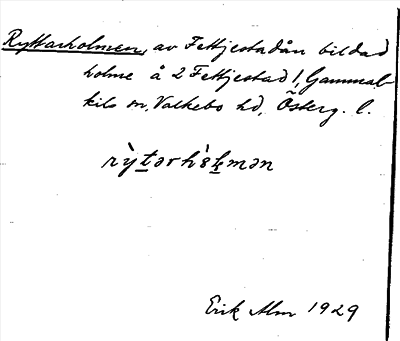 Ryttarholmen, av Fettjestadån bildad
holme å 2 Fettjestad 1, Gammal-
kils sn, Valkebo hd, Österg. l.
rỳtərhòlmən
Erik Alm 1929